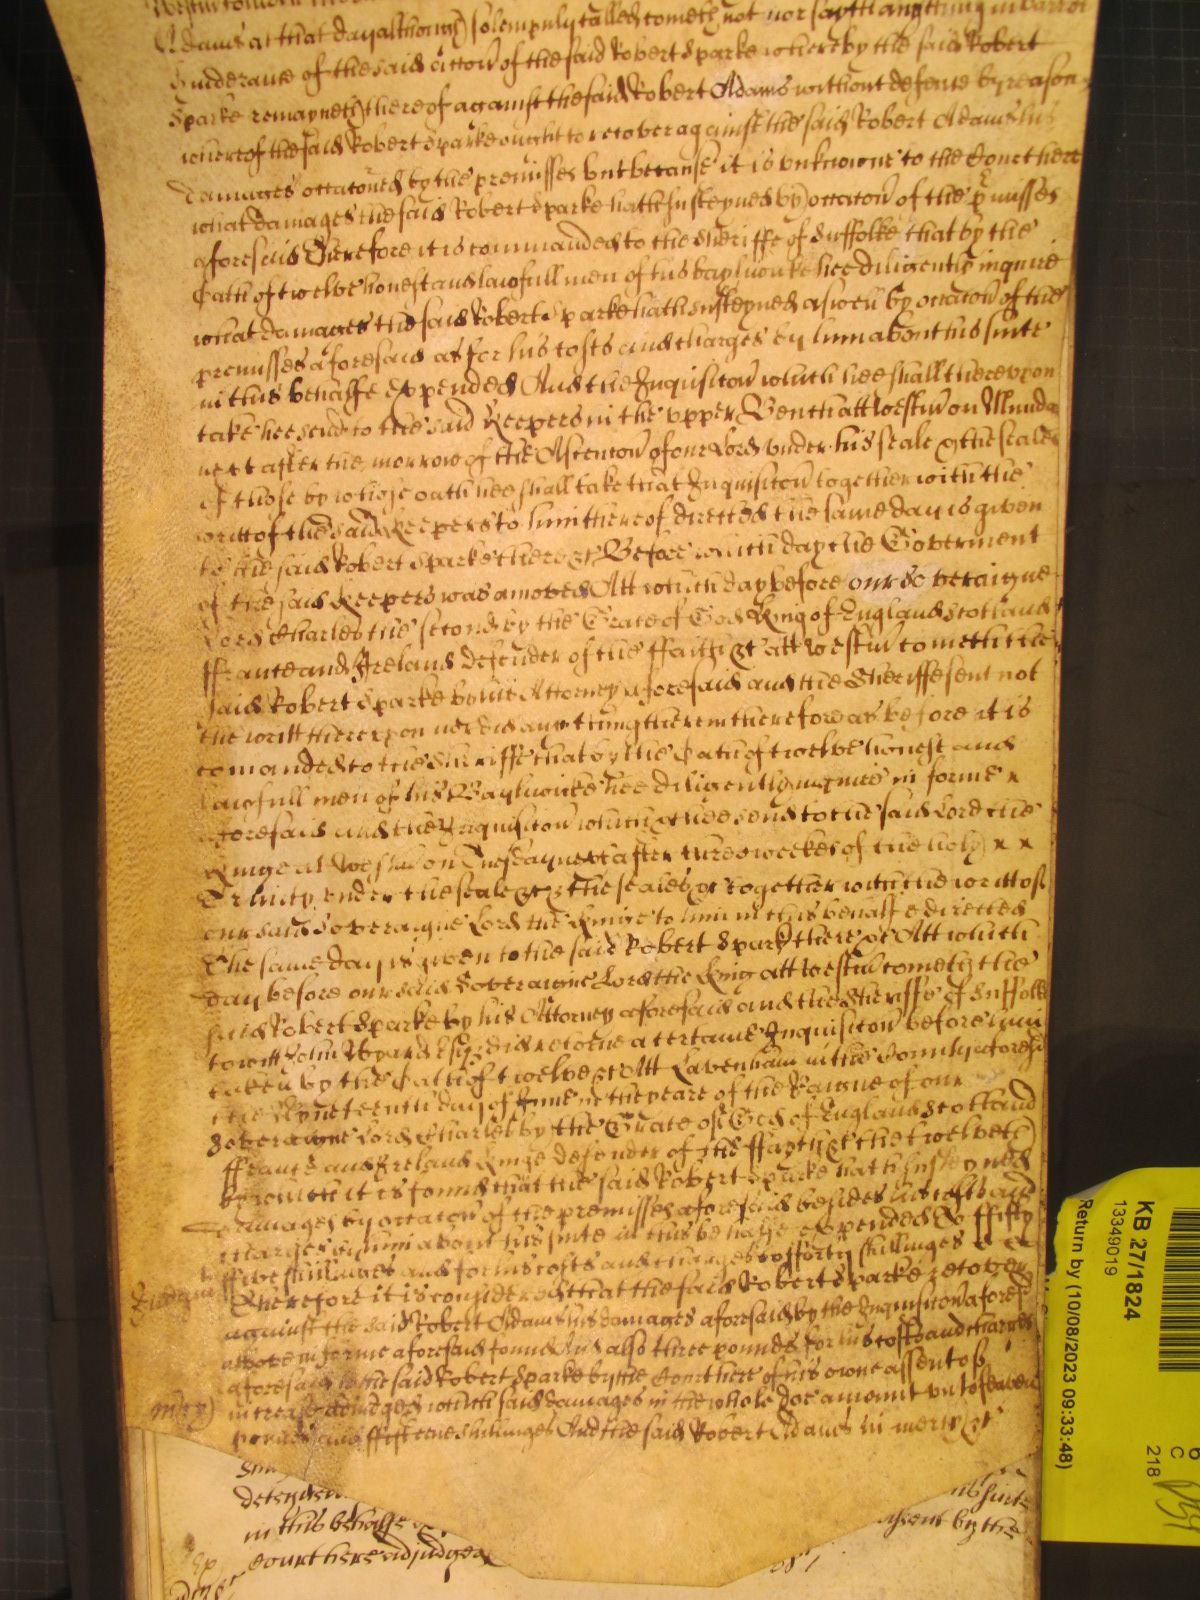 Adams at that day although solempnly called cometh not nor sayth anything in barr or
hinderance of the said accon of the said Robert Sparke whereby the said Robert
Sparke remayneth thereof against the said Robert Adams without defence by reason
whereof the said Robert Sparke ought to recover against the said Robert Adams his
damages occaconed by the premisses but because it is unknowne to the Court here
what damages the said Robert Sparke hath susteyned by occacon of the pmisses
aforesaid Therefore it is commanded to the Sheriffe of Suffolke that by the
Oath of twelve honest and lawfull men of his baylywicke hee diligently inquire
what damages the said Robert Sparke hath susteyned aswell by occacon of the
premisses aforesaid as for his costs and charges by him about his suite
in this behalfe expended And the Inquisicon which hee shall thereupon
take hee send to the said Keepers in the upper Bench att Westm on Munday
next after the morrow of the Ascencon of our Lord under his seale & the seales
of those by whose oath hee shall take that Inquisicon together with the
writt of the said Keepers to him thereof directed the same day is given
to the said Robert Sparke there &c Before which day the Goverment
of the said Keepers was amoved Att which day before our Soveraigne
Lord Charles the second by the Grace of God King of England Scotland
ffrance and Ireland defender of the ffaith &c att Westm cometh the
said Robert Sparke by his Attorney aforesaid and the Sheriffe sent not
the writt thereupon nor did any thing therein therefore as before it is
comanded to the Sheriffe that by the Oath of twelve honest and
lawfull men of his Baylywicke hee diligently inquire in forme
aforesaid and the Inquisicon which &c hee send to the said Lord the
Kinge at Westm on Tuesday next after three weekes of the holy
Trinity under the seale &c & the seales &c together with the writt of
our said Soveraigne Lord the Kinge to him in this behalfe directed
The same day is given to the said Robert Sparke there &c Att which
day before our said Soveraigne Lord the King att Westm cometh the
said Robert Sparke by his Attorney aforesaid and the Sheriffe of Suffolke
towitt John Wyard Esqr did retorne a certaine Inquisicon before him
taken by the Oath of twelve &c Att Lavenham in the County aforesd
the Nyneteenth day of June in the yeare of the Raigne of our
Soveraigne Lord Charles by the Grace of God of England Scotland
ffrance and Ireland Kinge defender of the ffayth &c the twelveth
by which it is found that the said Robert Sparke hath susteyned
damages by occacon of the premisses aforesaid besides his costs and
charges by him about his suite in this behalfe expended to ffifty
ffive shillinges and for his costs and charges to fforty shillinges
Therefore it is considered that the said Robert Sparke recover
against the said Robert Adams his damages aforesaid by the Inquisicon aforesd
above in forme aforesaid found And also three pounds for his costs and charges
aforesaid to the said Robert Sparke by the Court here of his owne assent of
increase adjudged which said damages in the whole doe amount unto seaven
pounds and ffifteene shillinges And the said Robert Adams in mercy &c
Judgmt
mcy
in this behalfe
Court here adjudged
his suite
assent by the
KB 27/1824
13349019
Return by (10/08/2023 09:33:48)
C
218